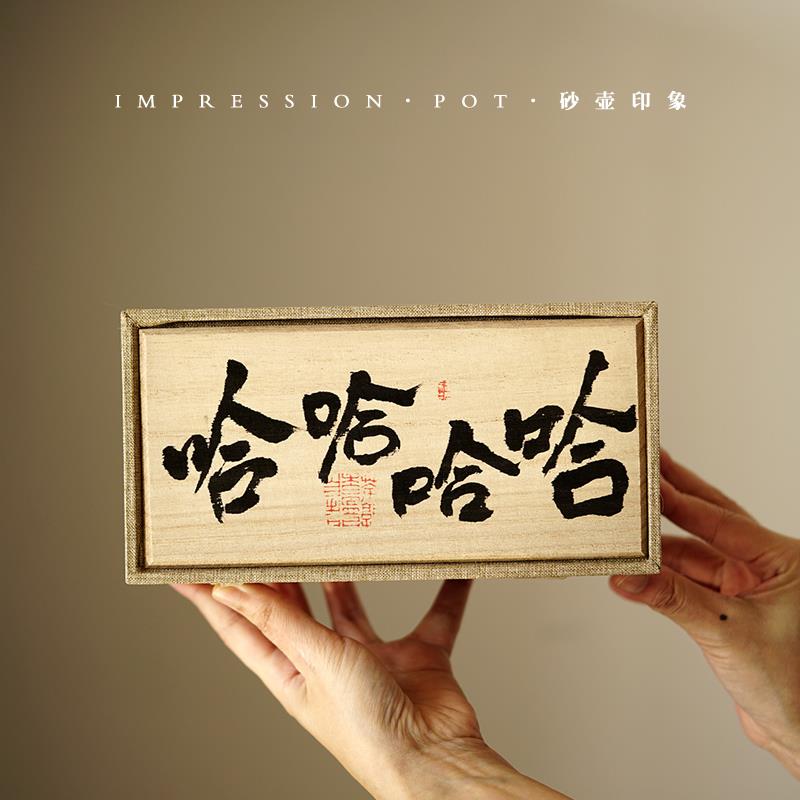 IMPRESSION·POT·砂壶印象
哈哈哈哈